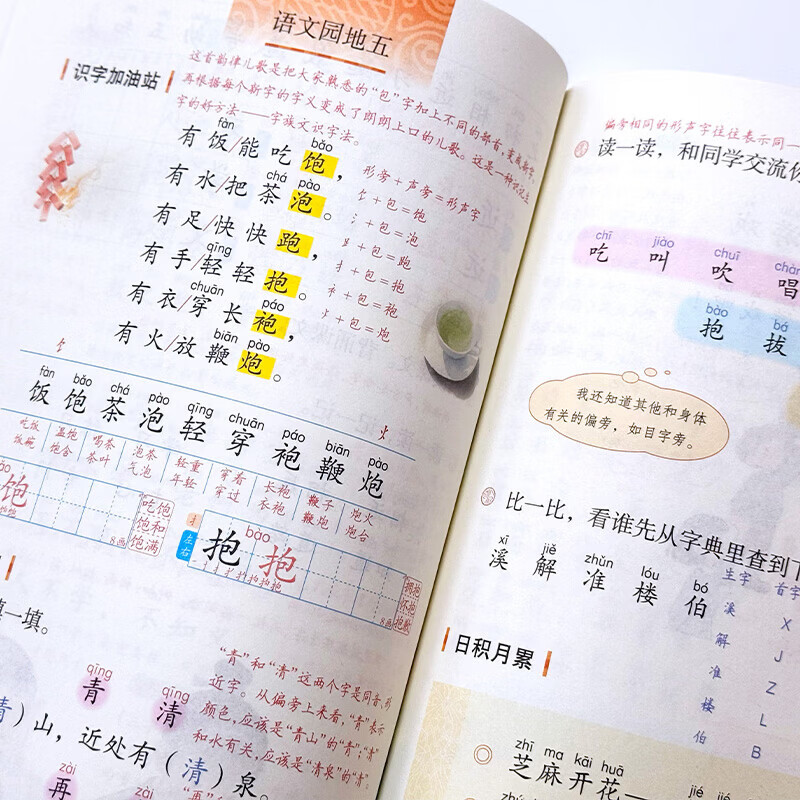 语文园地五
识字加油站
这首韵律儿歌是把大家熟悉的“包”字加上不同的部首,变成新字,
再根据每个新字的字义变成了朗朗上口的儿歌。这是一种识记生
字的好方法——字族文识字法。
fàn bǎo
有饭/能吃饱,
chá pào
有水/把茶泡。
有足/快快跑,
qīng
有手/轻轻抱。
chuān páo
有衣/穿长袍,
biān pào
有火/放鞭炮。
形旁+声旁=形声字
饣+包=饱
氵+包=泡
⻊+包=跑
扌+包=抱
衤+包=袍
火+包=炮
饣
火
fàn bǎo chá pào qīng chuān páo biān pào
饭 饱 茶 泡 轻 穿 袍 鞭 炮
吃饭 温饱 喝茶 泡茶 轻重 穿着 长袍 鞭子 炮火
饭碗 饱含 茶叶 气泡 年轻 穿过 衣袍 鞭炮 炮台
bǎo
饱
吃饱
饱和
饱满
8画
扌
左右
bào
抱 抱
拥抱
怀抱
抱歉
8画
填一填。
qīng qīng
青 清
(青)山,近处有(清)泉。
zài zài
再
“青”和“清”这两个字是同音、形
近字。从偏旁上来看,“青”表示
颜色,应该是“青山”的“青”;“清”
和水有关,应该是“清泉”的“清”。
偏旁相同的形声字往往表示同一
读一读,和同学交流你
chī jiào chuī chàng
吃 叫 吹 唱
bào bá
抱 拔
我还知道其他和身体
有关的偏旁,如目字旁。
比一比,看谁先从字典里查到下
xī jiě zhǔn lóu bó
溪 解 准 楼 伯
生字 首字
溪 X
解 J
准 Z
楼 L
伯 B
日积月累
zhī ma kāi huā jié jié
芝麻开花——